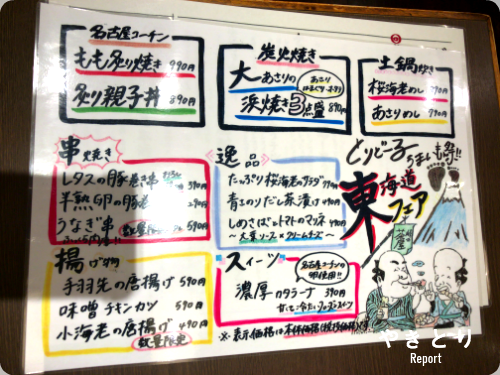 名古屋コーチン
もも炙り焼き 990円
炙り親子丼 890円
炭火焼き
大あさりの
浜焼き3点盛 890円
土鍋炊き
桜海老めし 990円
あさりめし 990円
串焼き
レタスの豚巻き串 390円
半熟卵の豚巻
うなぎ串 590円
逸品
たっぷり桜海老のサラダ
青のりだし茶漬け 490円
しめさばとトマトのマリネ
〜大葉ソース×クリームチーズ〜
揚げ物
手羽先の唐揚げ 590円
味噌チキンカツ 590円
小海老の唐揚げ 490円
数量限定
スイーツ
名古屋コーチンの
卵使用!!
濃厚カタラーナ 390円
※表示価格は本体価格(税抜価格)です
とりどーる
うまいもん祭!!
東海道
フェア
やきとり
Report